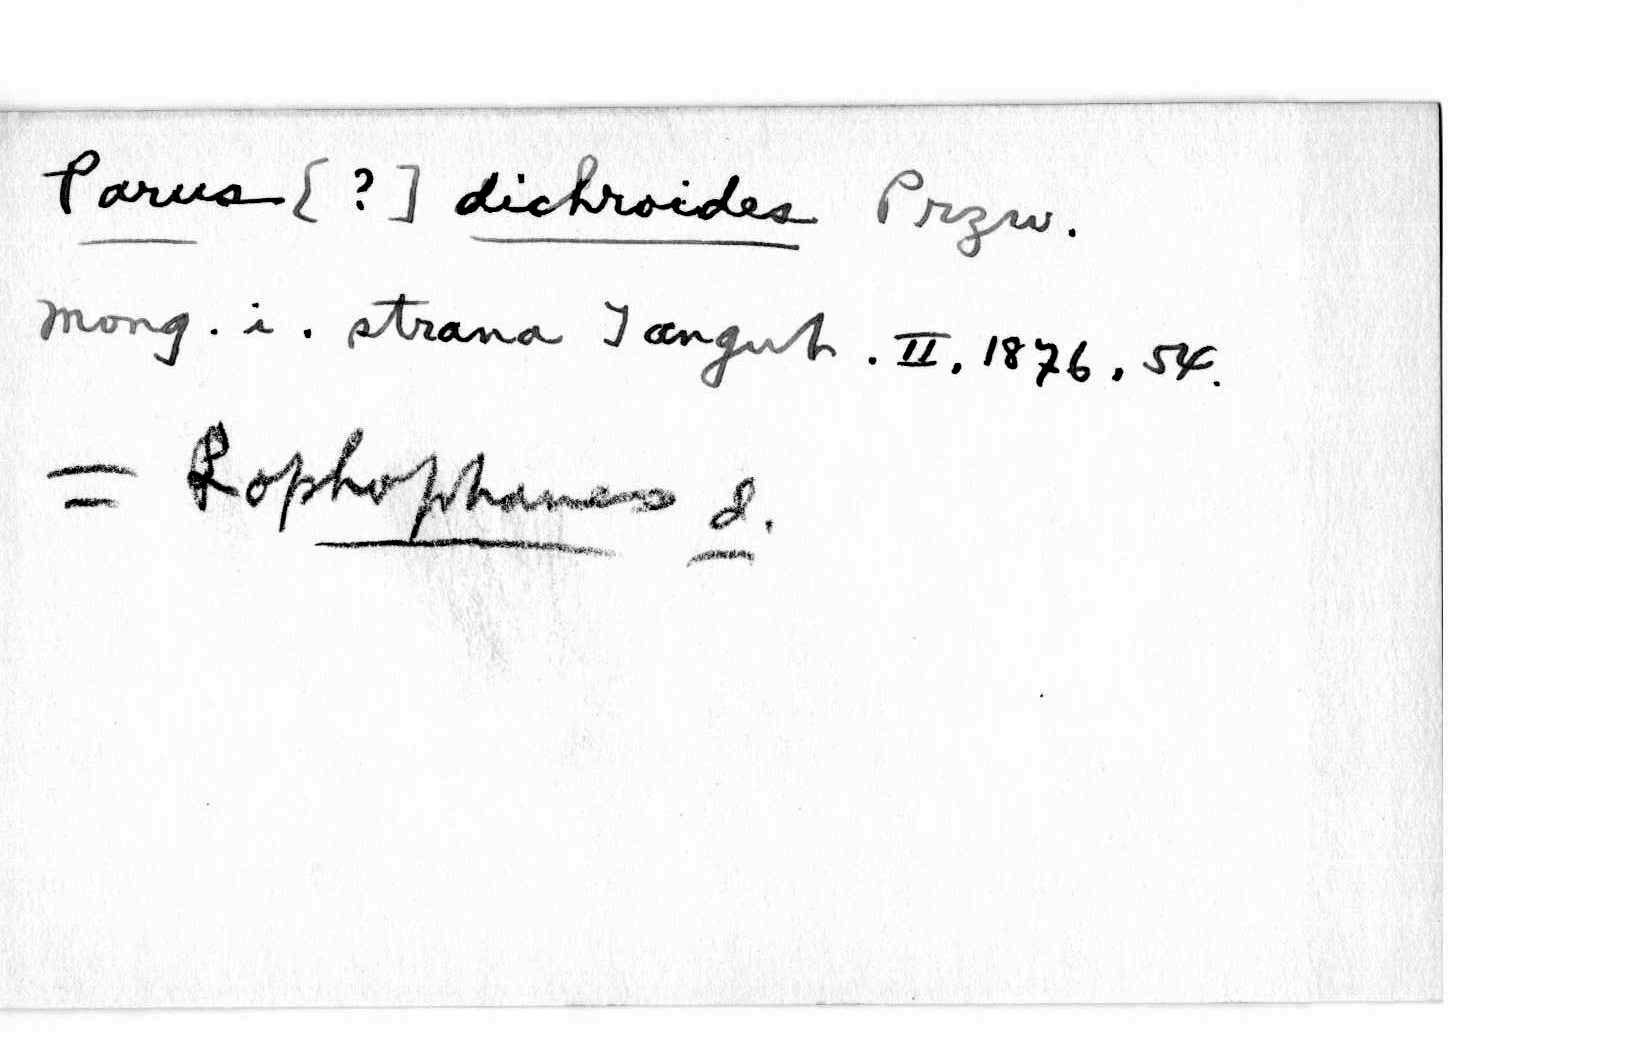 Parus [?] dichroides Przw.
Mong. i. strana Tangut. II, 1876, 54.
= Lophophanes d.